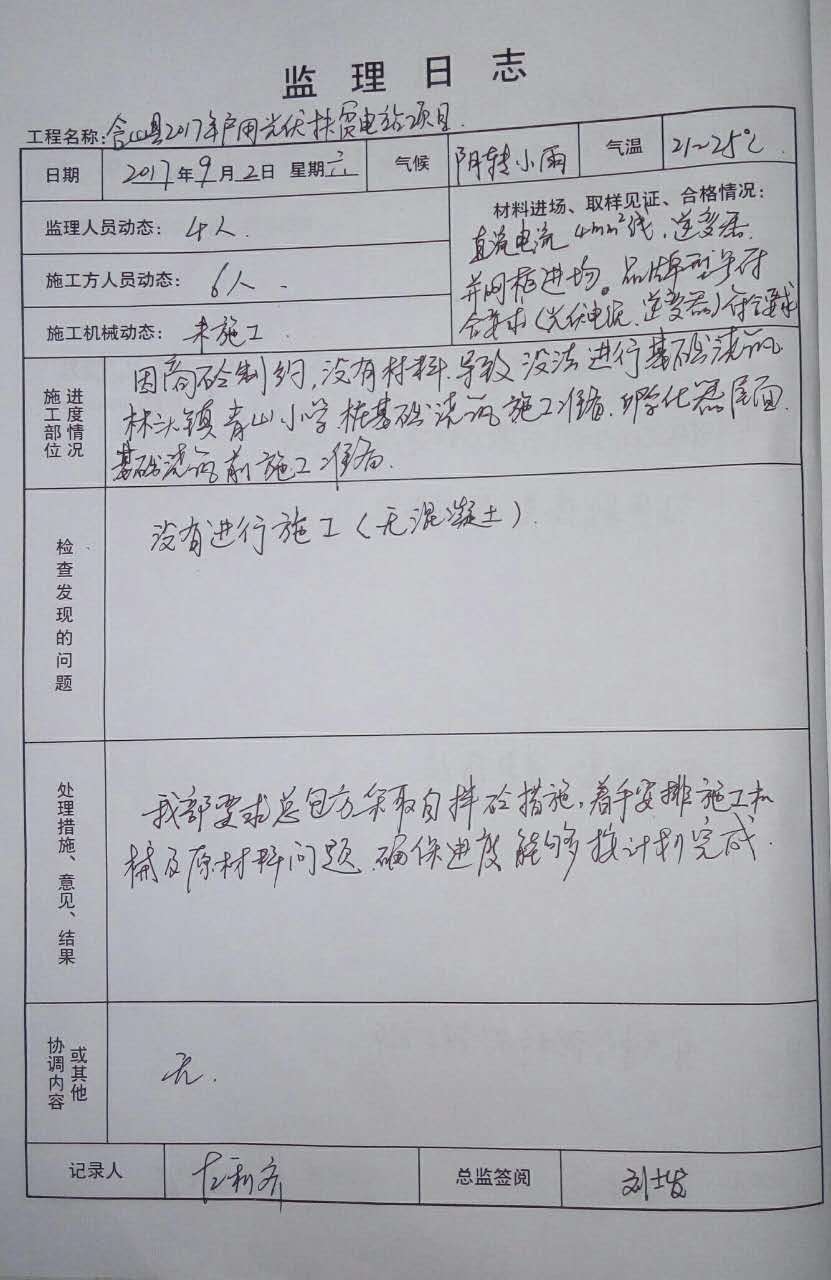 监理日志
工程名称：含山县2017年户用光伏扶贫电站项目.
日期 2017年9月2日 星期六 气候 阴转小雨 气温 21~25℃
监理人员动态：4人.
施工方人员动态：6人.
施工机械动态：未施工
材料进场、取样见证、合格情况：
直流电流 4mm²线，逆变器
并网柜进场。品牌型号符
合要求（光伏电流、逆变器）符合要求
施工部位 进度情况
因商砼制约，没有材料.导致没法进行基础浇筑.
林头镇青山小学桩基础浇筑施工准备.孵化器屋面
基础浇筑前施工准备.
检查发现的问题
没有进行施工（无混凝土）.
处理措施、意见、结果
我部要求总包方采取自拌砼措施，着手安排施工机
械及原材料问题.确保进度能够按计划完成.
协调内容 或其他
无.
记录人 总监签阅 刘士发